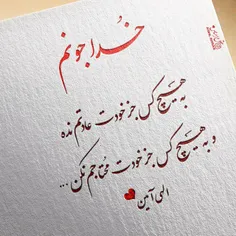 خدا جونم
به هیچ کس جز خودت عادتم نده
و به هیچ کس جز خودت محتاجم نکن ...
الهی آمین